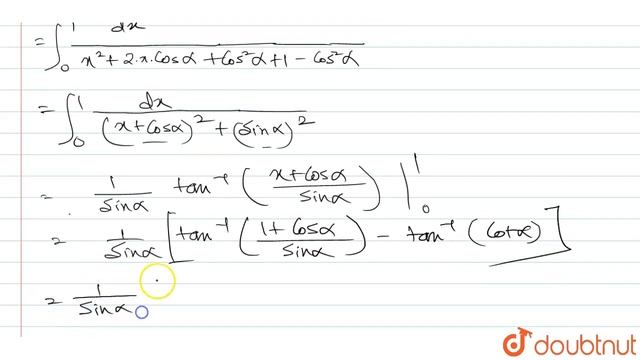 = ∫₀¹ dx / (x² + 2.x.cosα + cos²α + 1 - cos²α)
= ∫₀¹ dx / ((x+cosα)² + (sinα)²)
= 1/sinα tan⁻¹ ((x+cosα)/sinα) |₀¹
= 1/sinα [tan⁻¹ ((1+cosα)/sinα) - tan⁻¹ (cotα)]
= 1/sinα
doubtnut